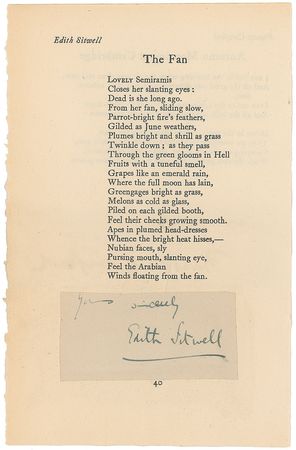 Edith Sitwell
The Fan
LOVELY Semiramis
Closes her slanting eyes :
Dead is she long ago.
From her fan, sliding slow,
Parrot-bright fire's feathers,
Gilded as June weathers,
Plumes bright and shrill as grass
Twinkle down ; as they pass
Through the green glooms in Hell
Fruits with a tuneful smell,
Grapes like an emerald rain,
Where the full moon has lain,
Greengages bright as grass,
Melons as cold as glass,
Piled on each gilded booth,
Feel their cheeks growing smooth.
Apes in plumed head-dresses
Whence the bright heat hisses,—
Nubian faces, sly
Pursing mouth, slanting eye,
Feel the Arabian
Winds floating from the fan.
Yours sincerely
Edith Sitwell
40